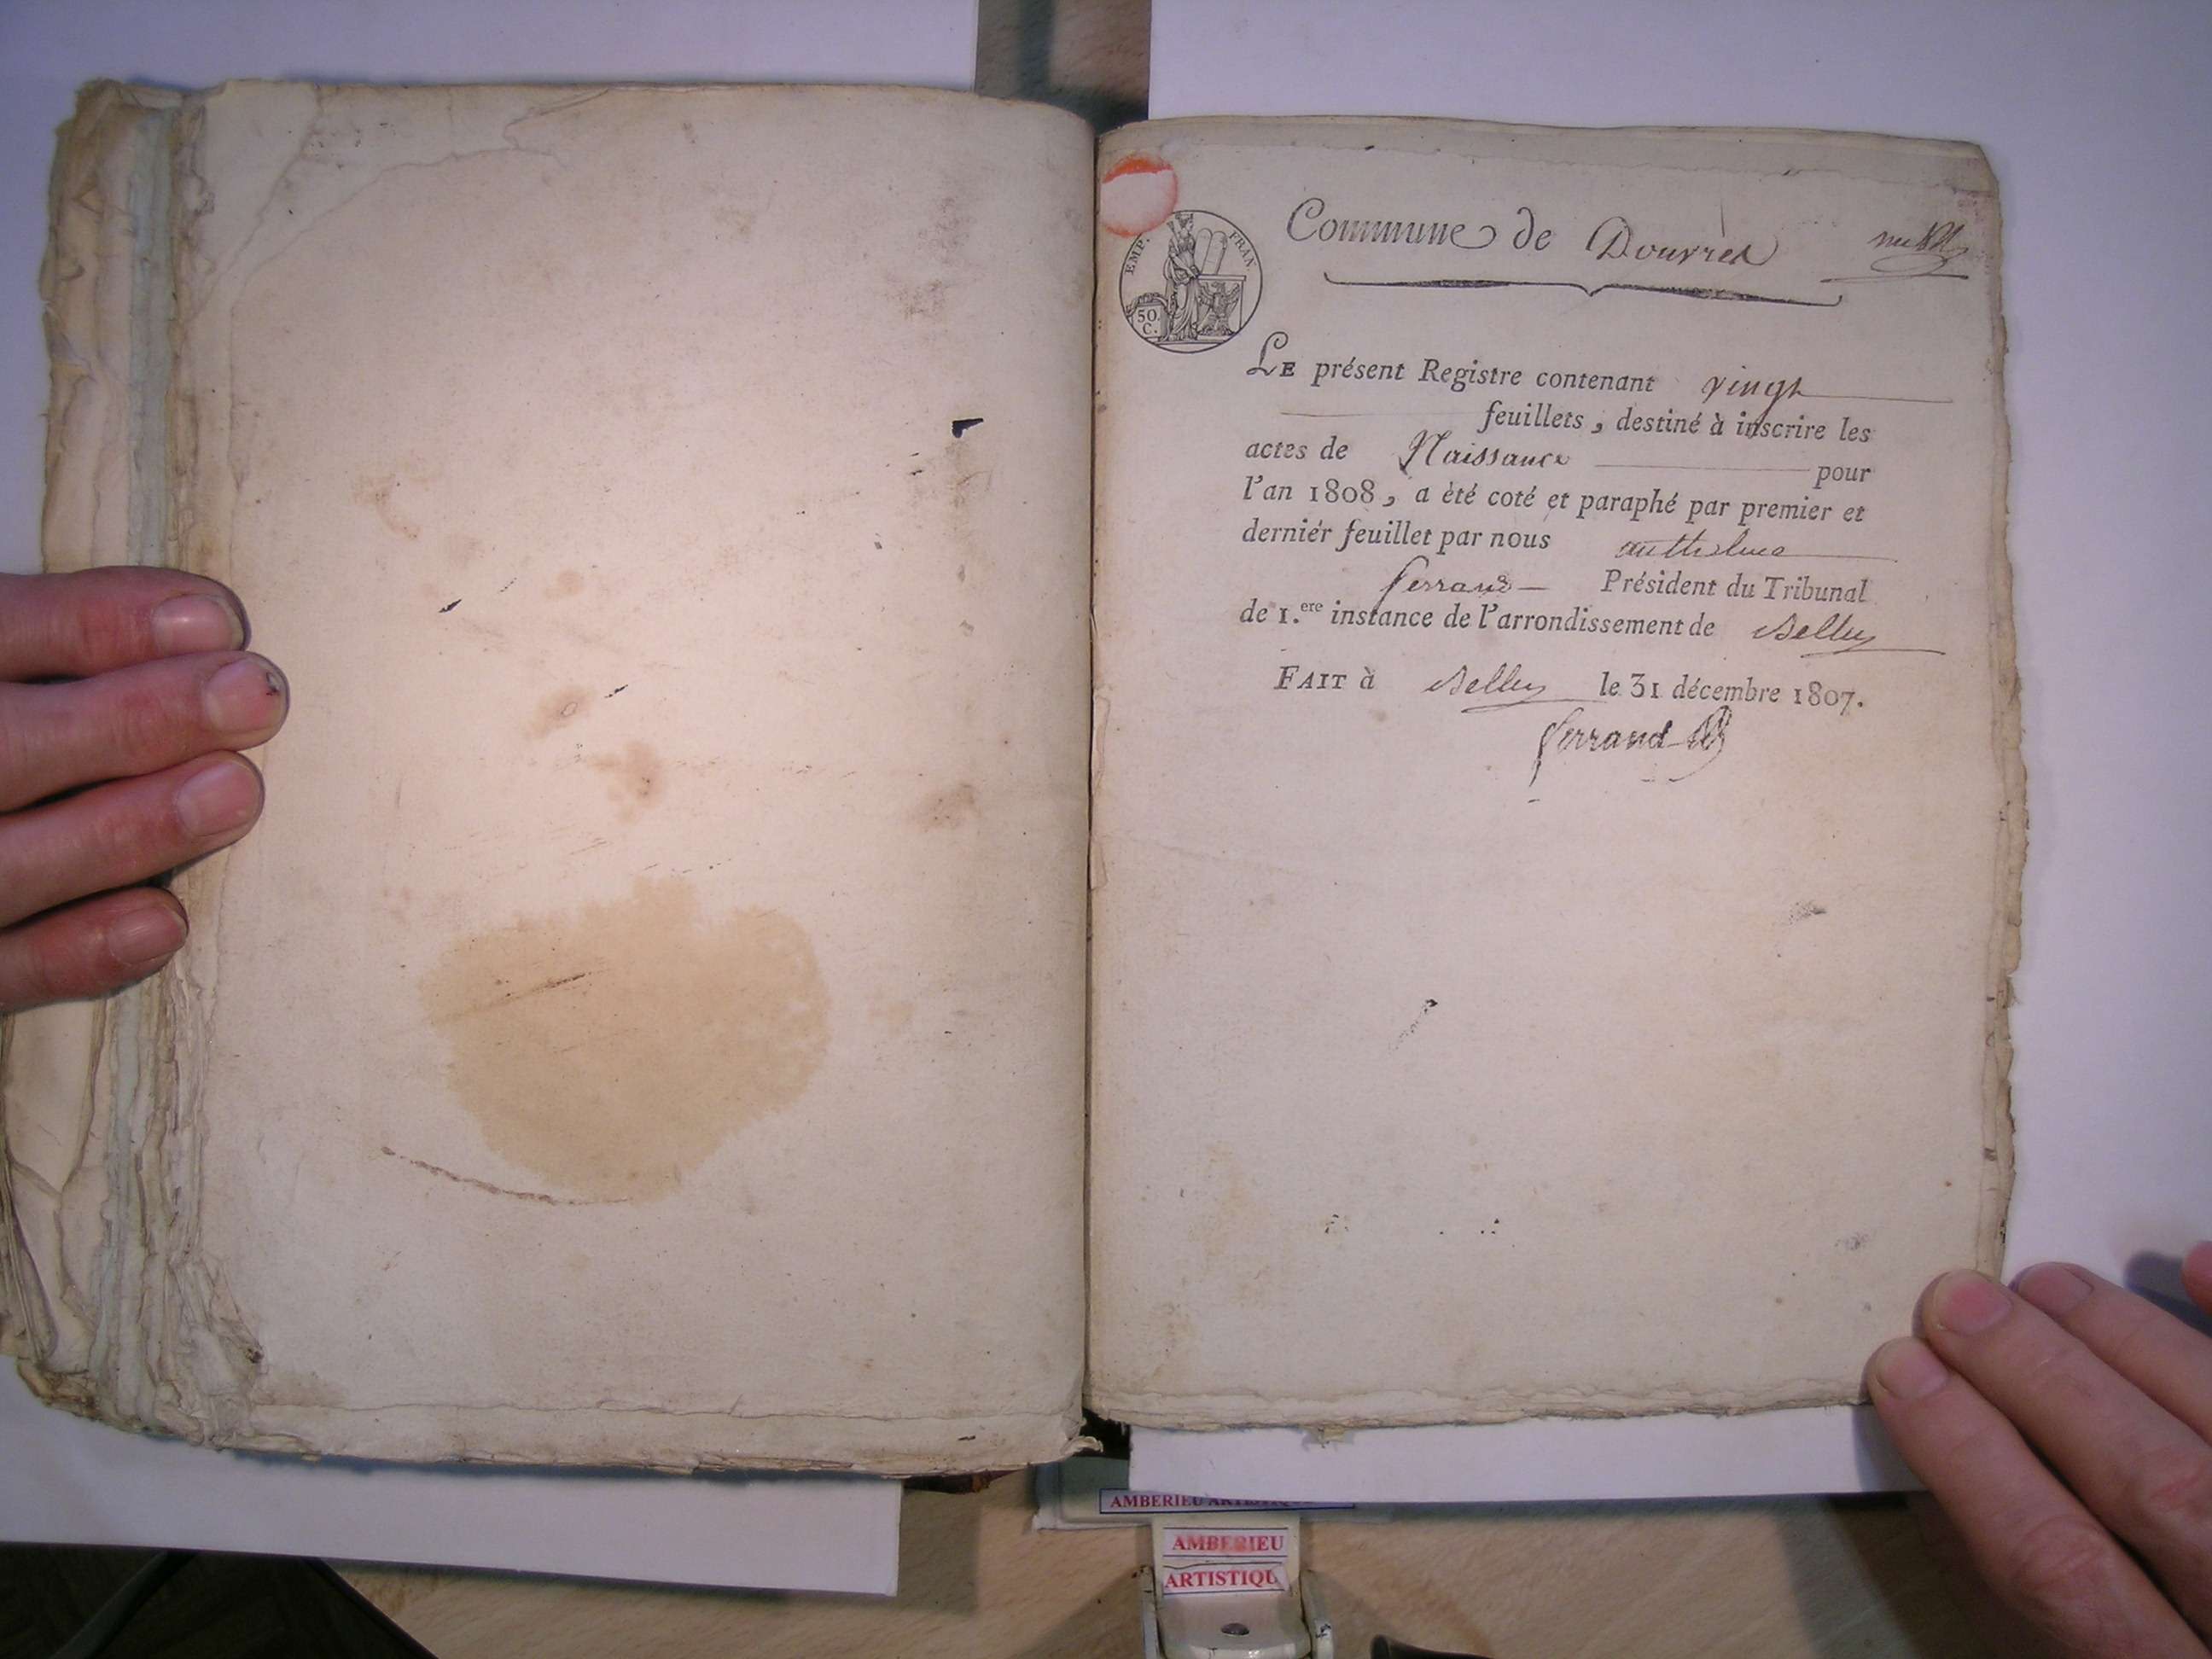 Commune de Douvres
EMP. FRAN.
50.
C.
LE présent Registre contenant vingt
feuillets, destiné à inscrire les
actes de Naissance pour
l'an 1808, a été coté et paraphé par premier et
derniér feuillet par nous anthelme
ferrand Président du Tribunal
de 1.ere instance de l'arrondissement de Belley
FAIT à Belley le 31 décembre 1807.
ferrand
AMBERIEU ARTISTIQUE
AMBERIEU
ARTISTIQU